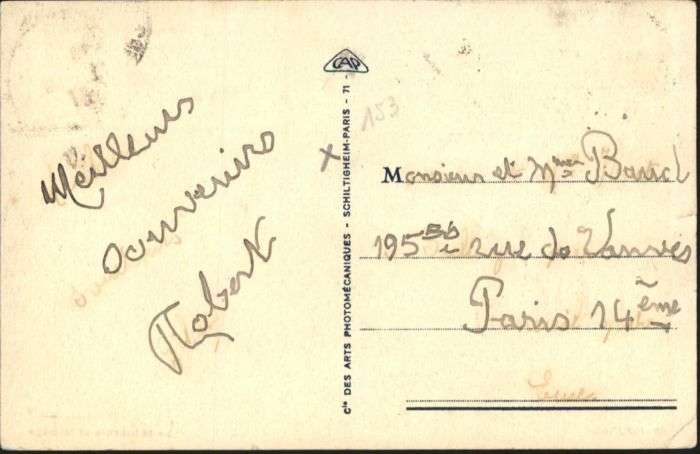 Meilleurs
souvenirs
Robert
CAP
Cie DES ARTS PHOTOMÉCANIQUES - SCHILTIGHEIM-PARIS - 71 -
153
x
Monsieur et Mme
195 rue de Vanves
Paris 14ème